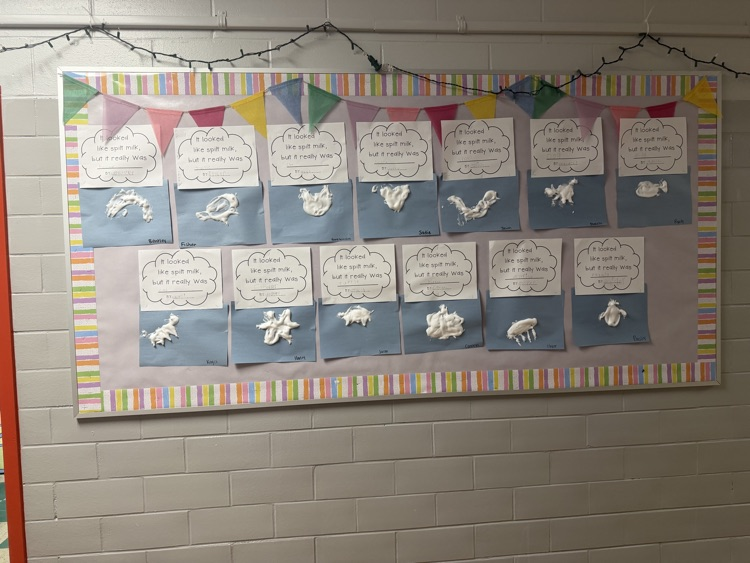 It looked
like spilt milk,
but it really was
It looked
like spilt milk,
but it really was
It looked
like spilt milk,
but it really was
It looked
like spilt milk,
but it really was
It looked
like spilt milk,
but it really was
It looked
like spilt milk,
but it really was
It looked
like spilt milk,
but it really was
Fisher
It looked
like spilt milk,
but it really was
It looked
like spilt milk,
but it really was
It looked
like spilt milk,
but it really was
It looked
like spilt milk,
but it really was
It looked
like spilt milk,
but it really was
It looked
like spilt milk,
but it really was